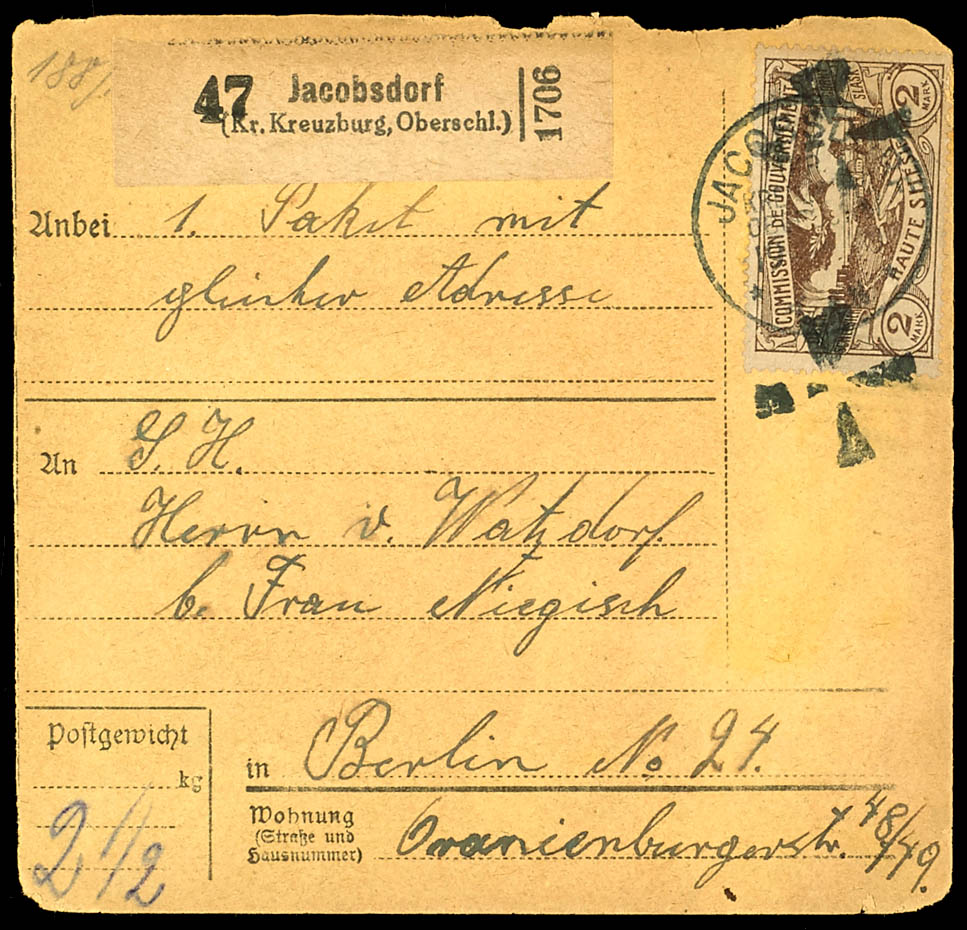 188/
47 Jacobsdorf
(Kr. Kreuzburg, Oberschl.)
1706
Anbei 1. Paket mit
gleicher Adresse
An S. H.
Herrn v. Watzdorf
b. Frau Niegisch
Postgewicht
kg
2 1/2
in Berlin No 24.
Wohnung
(Straße und
Hausnummer)
Oranienburgerstr. 48/49.
COMMISSION DE GOUVERNEMENT
HAUTE SILESIE
2 MARK
2 MARK
JACOBSDORF